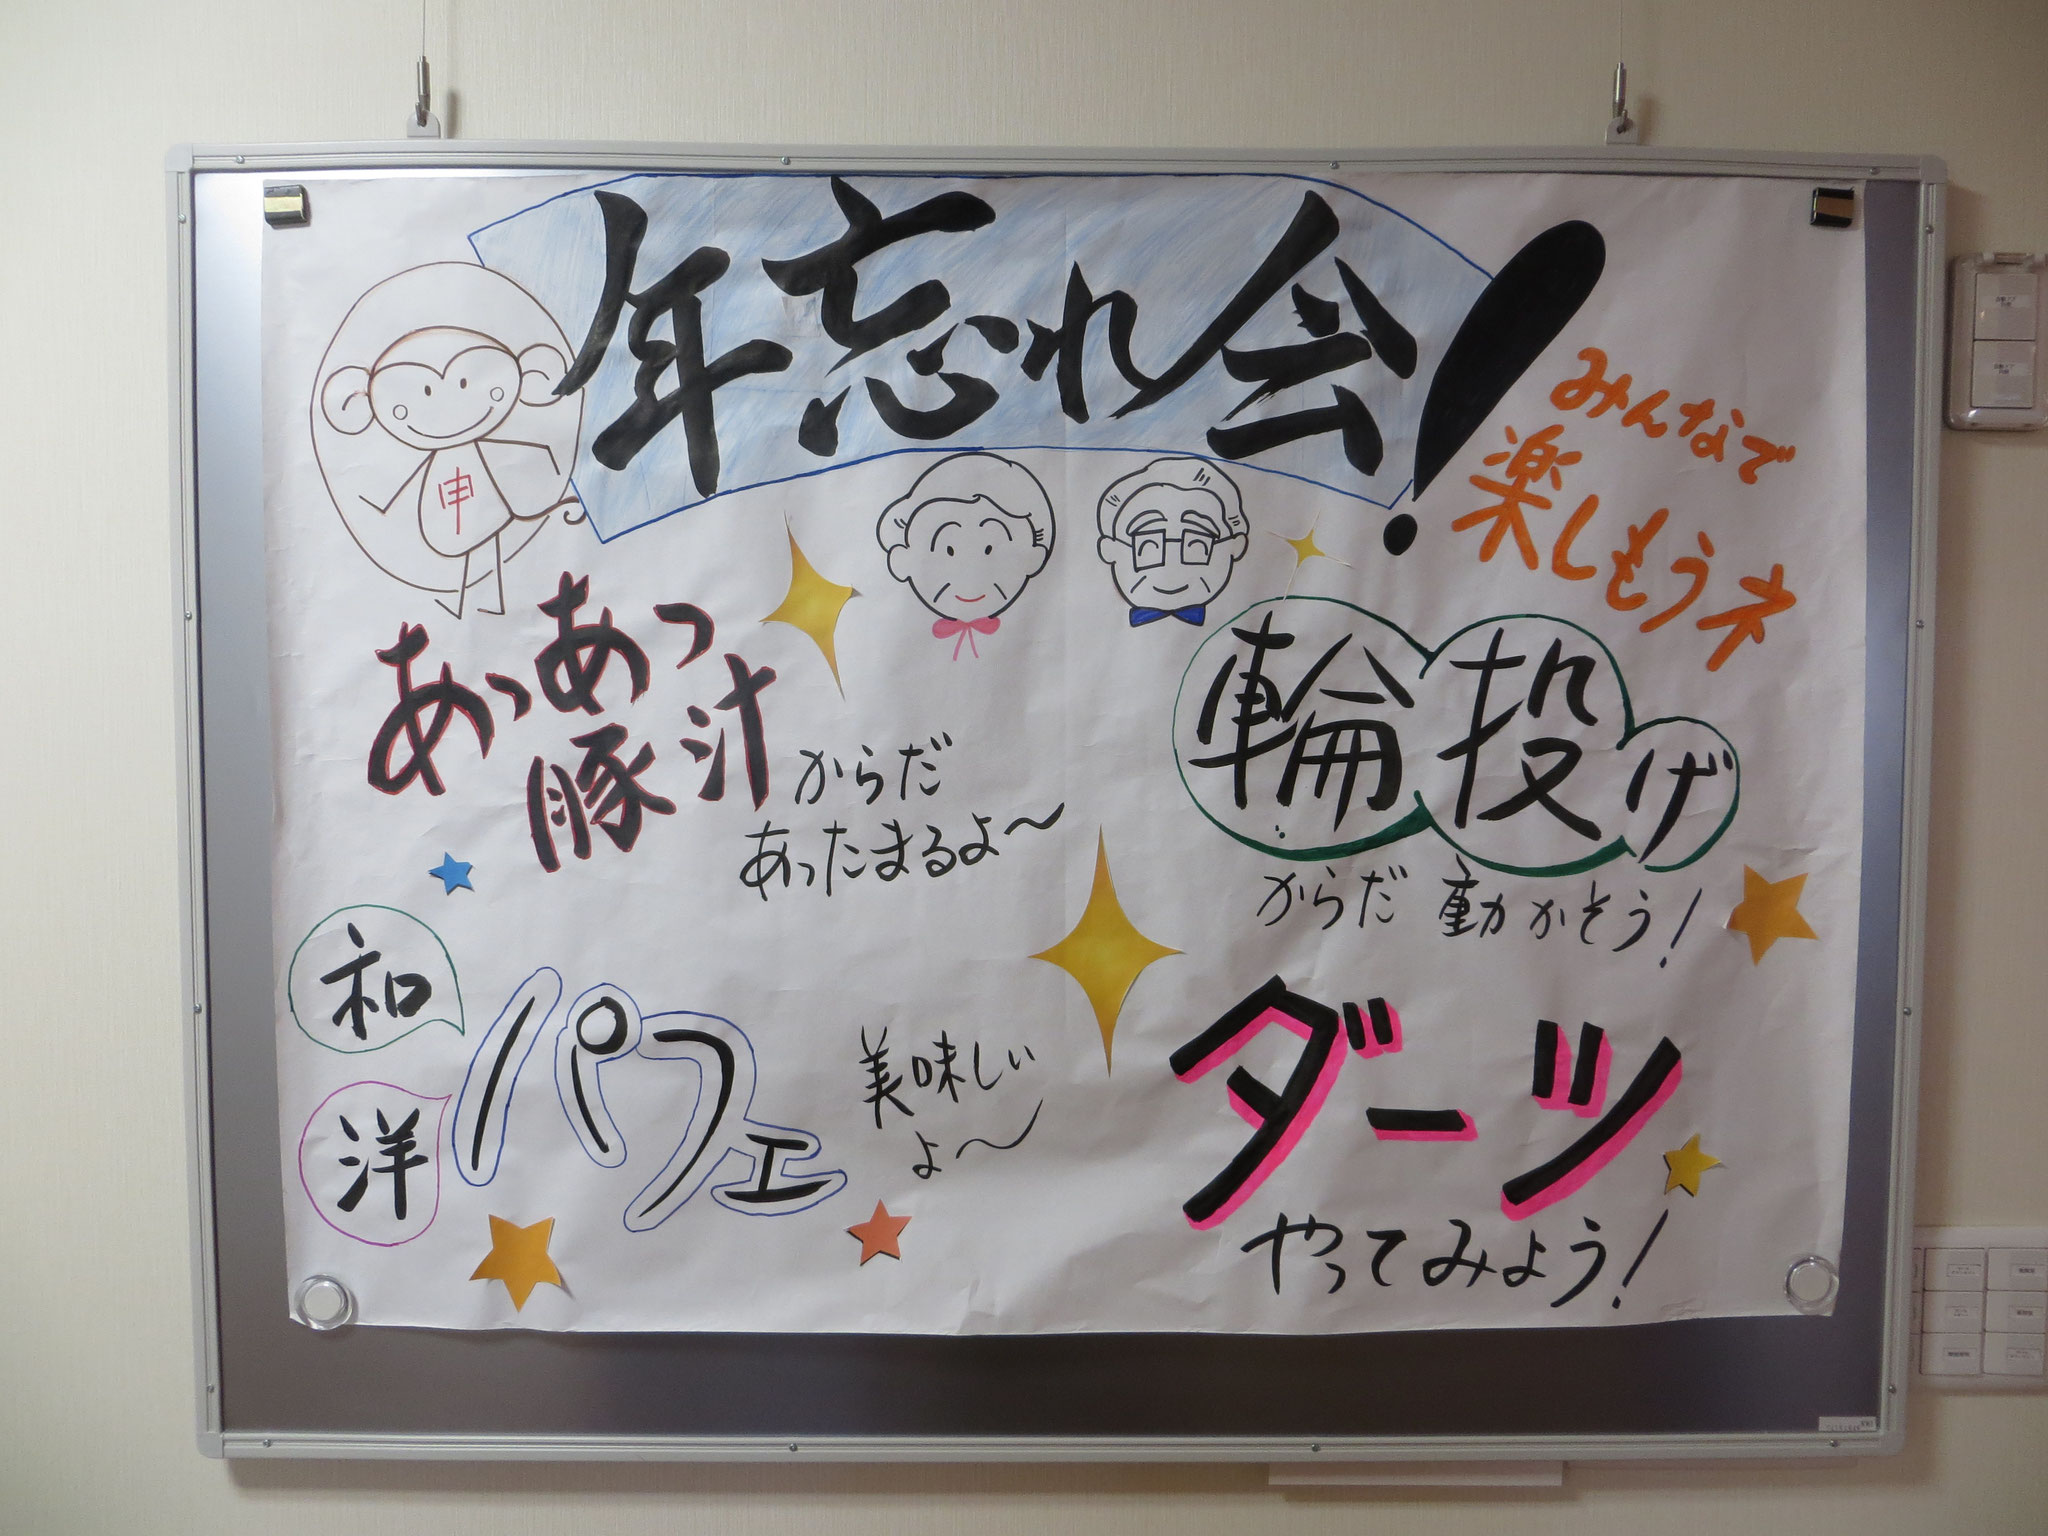 年忘れ会!
みんなで
楽しもうネ
申
あっあつ
豚汁
からだ
あったまるよ〜
輪投げ
からだ動かそう!
和
洋
パフェ
美味しい
よ〜
ダーツ
やってみよう!